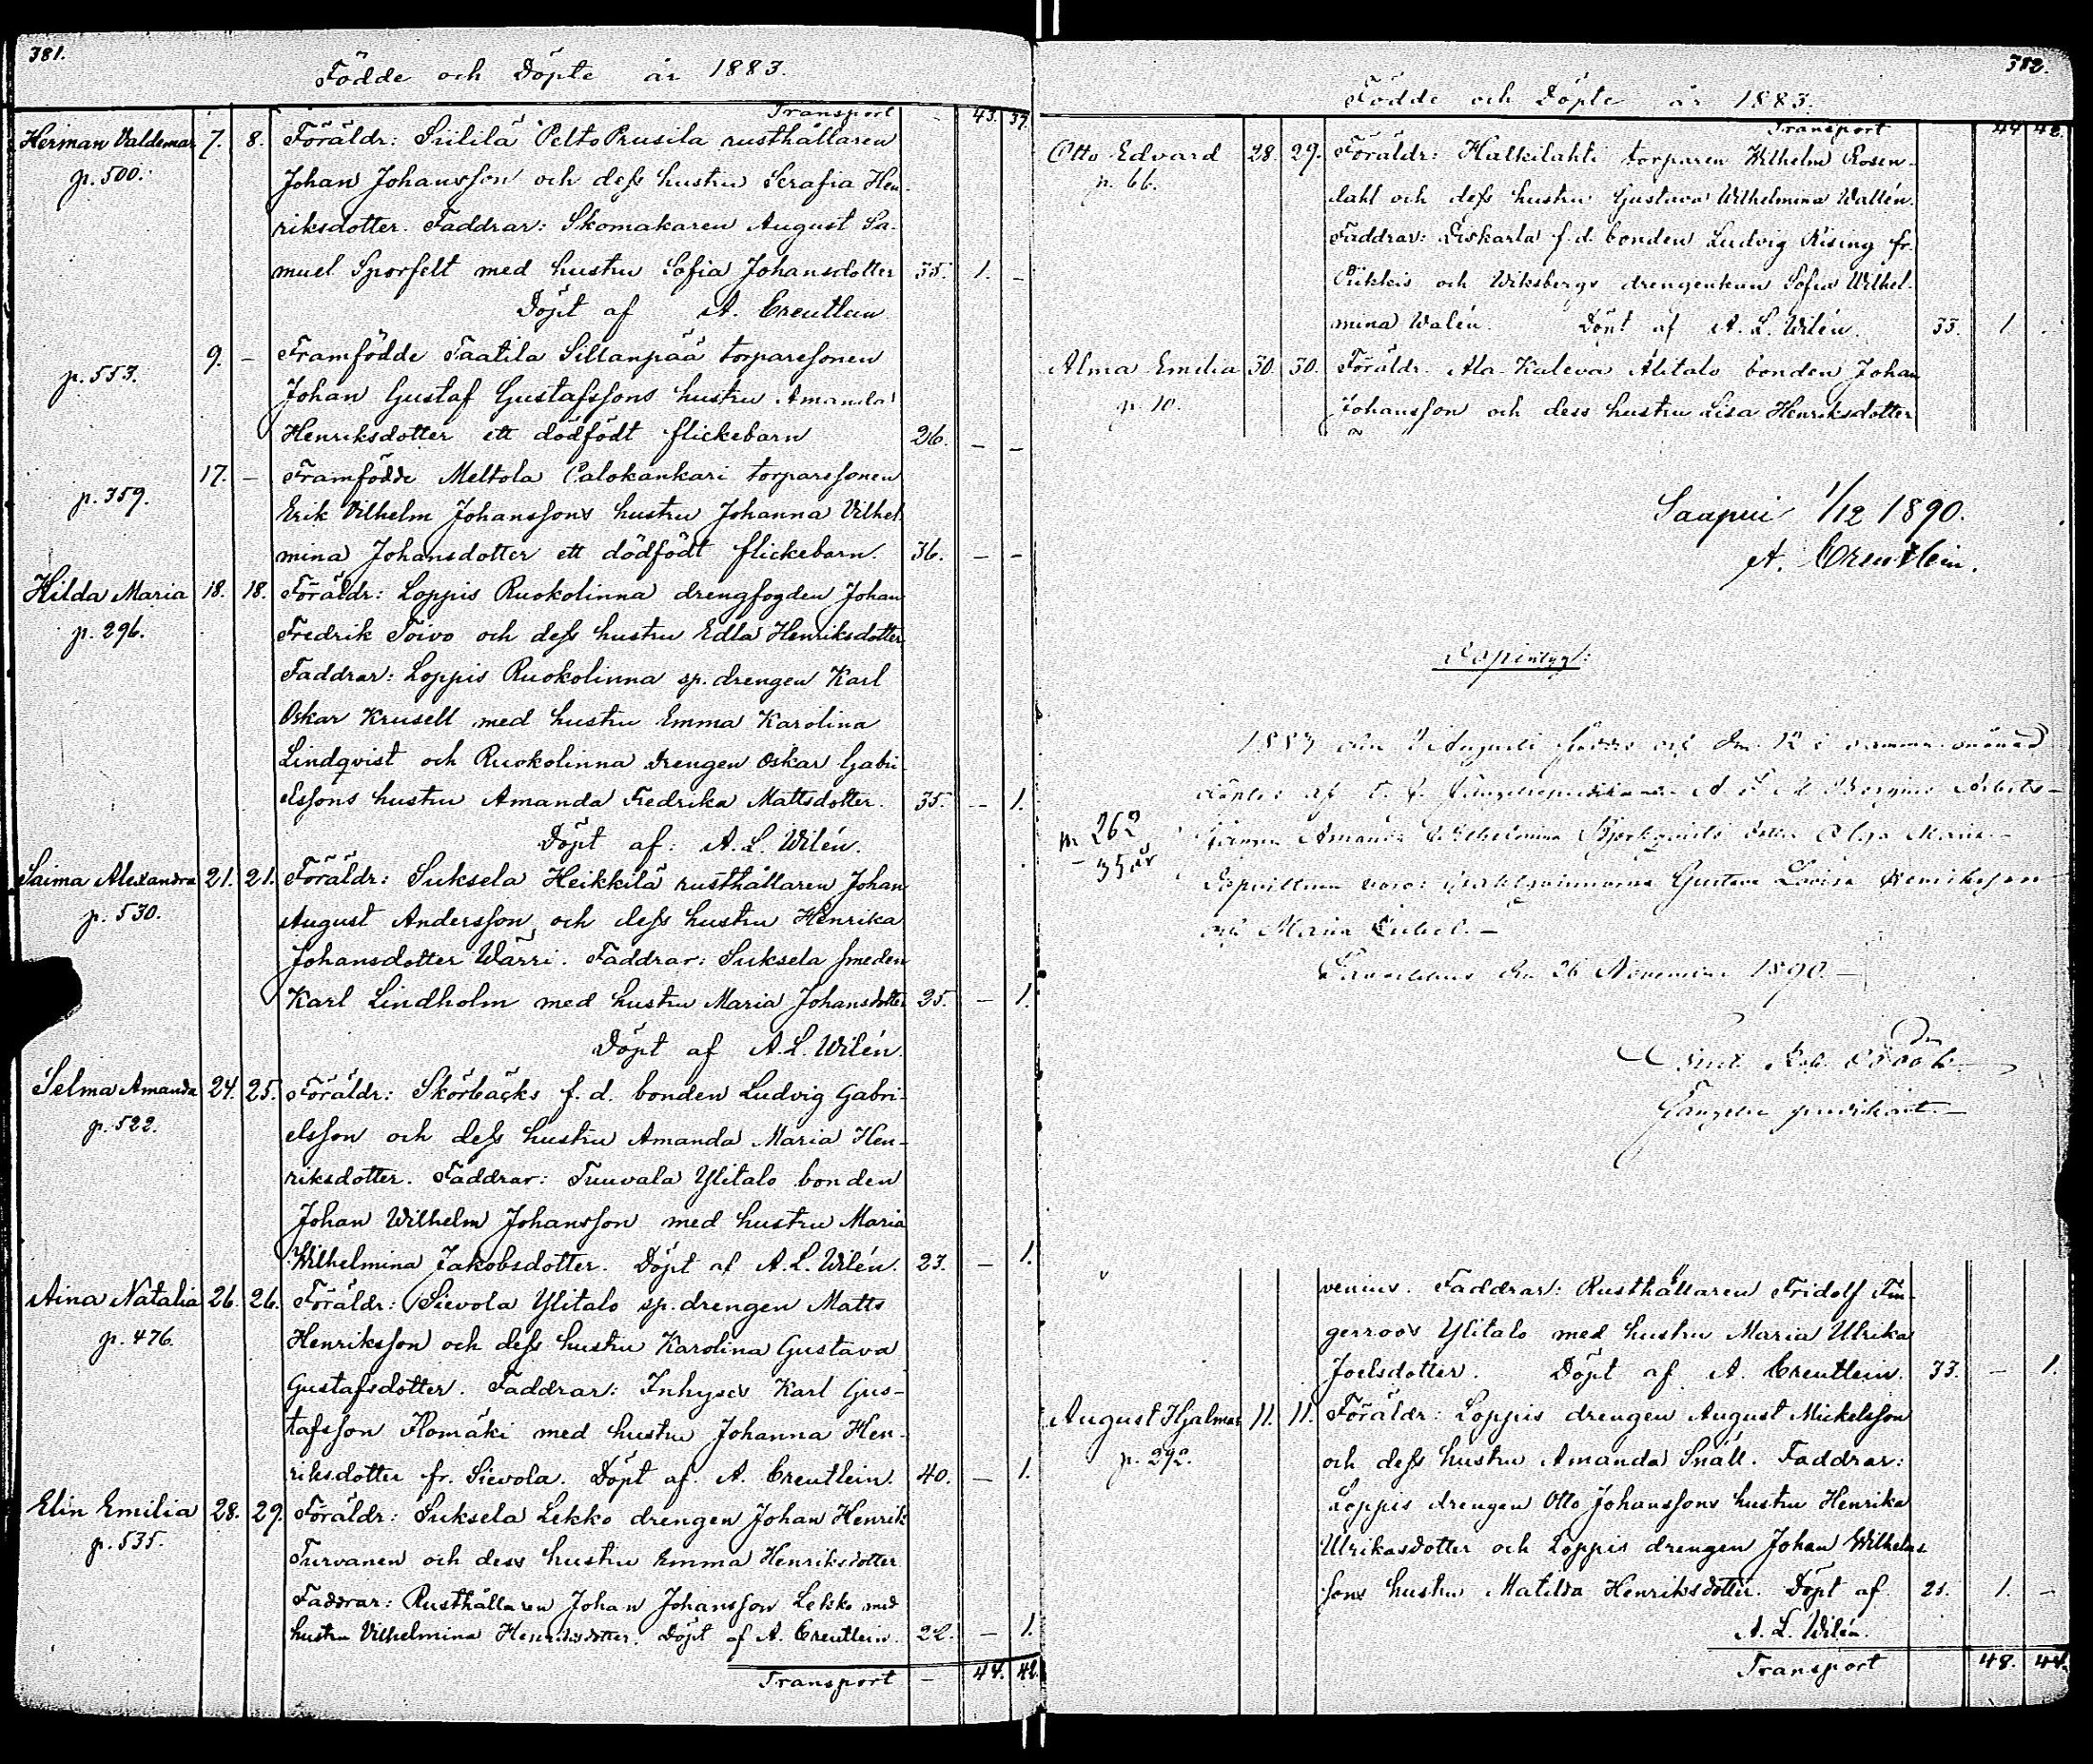 381.
Födde och Döpte år 1883.
Transport 43. 37.
Herman Valdemar 7. 8. Föräldr: Siililä Pelto Prusila rusthållaren
p. 500. Johan Johansson och dess hustru Serafia Hen-
riksdotter. Faddrar: Skomakaren August Sa-
muel Sporfelt med hustru Sofia Johansdotter 35. 1. –
Döpt af A. Creutlein
9. – Framfödde Taatila Sillanpää torparesonen
p. 553. Johan Gustaf Gustafssons hustru Amanda
Henriksdotter ett dödfödt flickebarn 26. – –
17. – Framfödde Meltola Palokankari torparesonen
p. 359. Erik Vilhelm Johanssons hustru Johanna Vilhel-
mina Johansdotter ett dödfödt flickebarn. 36. – –
Hilda Maria 18. 18. Föräldr: Loppis Ruokolinna drengfogden Johan
p. 296. Fredrik Toivo och dess hustru Edla Henriksdotter
Faddrar: Loppis Ruokolinna sp. drengen Karl
Oskar Krusell med hustru Emma Karolina
Lindqvist och Ruokolinna drengen Oskar Gabri-
elssons hustru Amanda Fredrika Mattsdotter. 35. – 1.
Döpt af: A. L. Wilén.
Saima Alexandra 21. 21. Föräldr: Suksela Heikkilä rusthållaren Johan
p. 530. August Andersson och dess hustru Henrika
Johansdotter Wärri. Faddrar: Suksela smeden
Karl Lindholm med hustru Maria Johansdotter 25. – 1.
Döpt af A. L. Wilén.
Selma Amanda 24. 25. Föräldr: Skörbäcks f. d. bonden Ludvig Gabri-
p. 522. elsson och dess hustru Amanda Maria Hen-
riksdotter. Faddrar: Tuuvala Ylitalo bonden
Johan Wilhelm Johansson med hustru Maria
Wilhelmina Jakobsdotter. Döpt af A. L. Wilén. 23. – 1.
Aina Natalia 26. 26. Föräldr: Sievola Ylitalo sp. drengen Matts
p. 476. Henriksson och dess hustru Karolina Gustava
Gustafsdotter. Faddrar: Inhyses Karl Gus-
tafsson Komäki med hustru Johanna Hen-
riksdotter fr. Sievola. Döpt af A. Creutlein. 40. – 1.
Elin Emilia 28. 29. Föräldr: Suksela Lekko drengen Johan Henrik
p. 535. Turvanen och dess hustru Emma Henriksdotter
Faddrar: Rusthållaren Johan Johansson Lekko med
hustru Vilhelmina Henriksdotter. Döpt af A. Creutlein. 22. – 1.
Transport – 44. 42.
382.
Födde och Döpte år 1883.
Transport 44 42.
Otto Edvard 28. 29. Föräldr: Halkilahti torparen Wilhelm Rosen-
p. 66. dahl och dess hustru Gustava Wilhelmina Wallén.
Faddrar: Liskarla f. d. bonden Ludvig Rising fr.
Piikkis och Wiksbergs drengenkan Sofia Wilhel-
mina Walén. Döpt af A. L. Wilén. 33. 1 –
Alma Emilia 30. 30. Föräldr. Ala-Kuleva Alitalo bonden Johan
p. 10. Johansson och dess hustru Lisa Henriksdotter
Saapui 1/12 1890.
A. Creutlein.
Dopintyg:
1883 den Augusti föddes och den 12 i samma månad
döptes af A Bergius Arbets-
№ 262 Amanda Wilhelmina dotter Olga Maria –
– 35 år Dopvittnen voro: Gustava Lovisa Henriksson
och Maria –
den 26 November 1890. –
Fängelse predikant. –
venius. Faddrar: Rusthållaren Fridolf Fin-
gerroos Ylitalo med hustru Maria Ulrika
Joelsdotter. Döpt af A. Creutlein. 33. – 1.
August Hjalmar 11. 11. Föräldr: Loppis drengen August Mickelsson
p. 292. och dess hustru Amanda Snäll. Faddrar:
Loppis drengen Otto Johanssons hustru Henrika
Ulrikasdotter och Loppis drengen Johan Wilhelms-
sons hustru Matilda Henriksdotter. Döpt af 21. 1. –
A. L. Wilén.
Transport 48. 44.